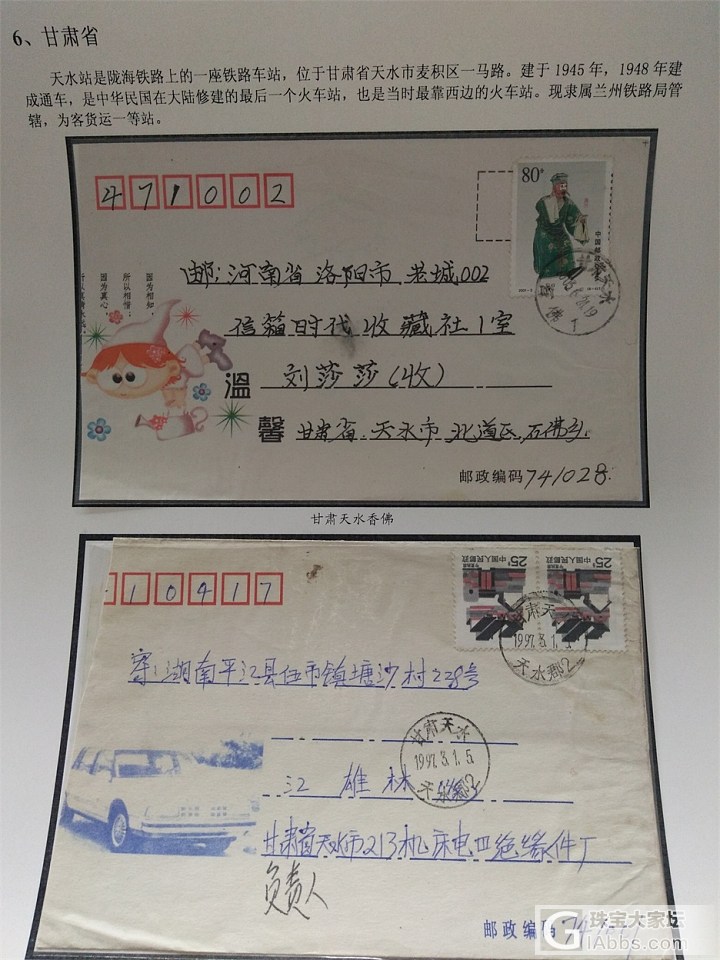 6、甘肃省
天水站是陇海铁路上的一座铁路车站，位于甘肃省天水市麦积区一马路。建于 1945 年，1948 年建
成通车，是中华民国在大陆修建的最后一个火车站，也是当时最靠西边的火车站。现隶属兰州铁路局管
辖，为客货运一等站。
471002
80分
邮：河南省 洛阳市 老城002
信箱时代收藏社1室
刘莎莎（收）
因为相知，
所以相惜；
因为真心，
温
馨
甘肃省 天水市 北道区 石佛乡
邮政编码 741028
甘肃天水香佛
10417
25分 中国人民邮政
25分 中国人民邮政
甘肃天
1997.3.1.5
天水郡2
寄：湖南平江县伍市镇塘沙村228号
甘肃天水
1997.3.1.5.
天水郡2
江 雄 林
甘肃省天水市213机床电四绝缘件厂
负责人
邮政编码
珠宝大家坛
GiAbbs.com